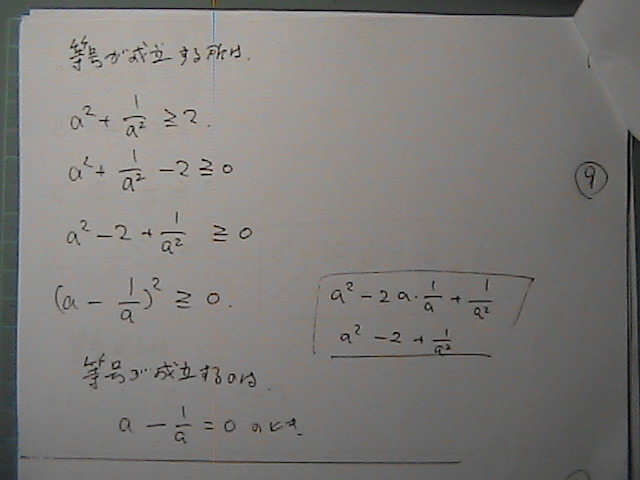 等号が成立する所は.
a² + 1/a² ≧ 2.
a² + 1/a² - 2 ≧ 0
⑨
a² - 2 + 1/a² ≧ 0
(a - 1/a)² ≧ 0.
a² - 2a・1/a + 1/a²
a² - 2 + 1/a²
等号が成立するのは.
a - 1/a = 0 のとき